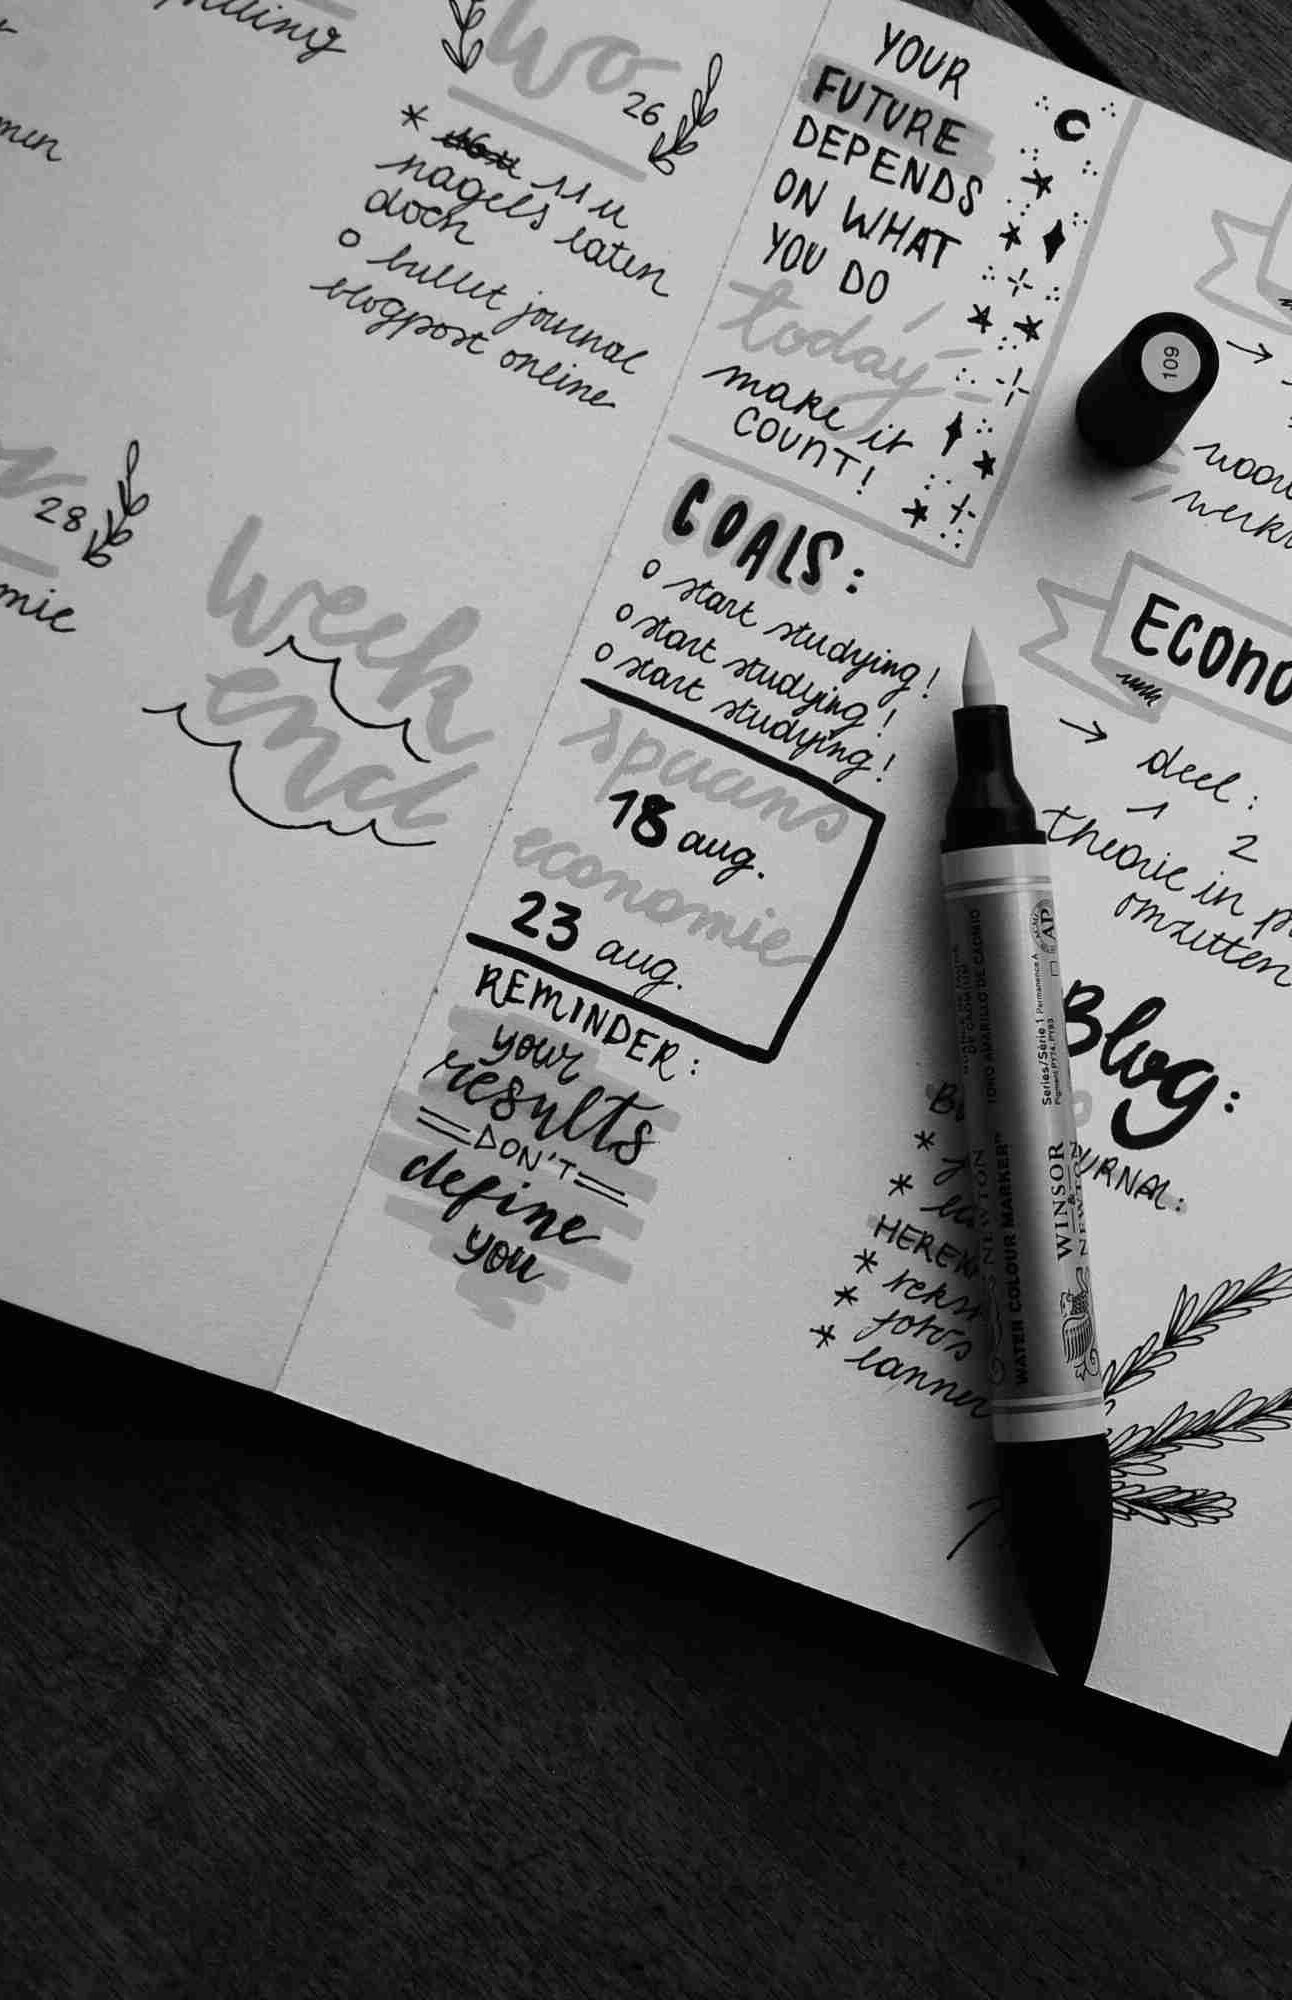 wo
26
* 11 u
nagels laten
doen
o bullet journal
blogpost online
28
week
end
YOUR
FUTURE
DEPENDS
ON WHAT
YOU DO
today
make it
COUNT!
GOALS:
o start studying!
o start studying!
o start studying!
spaans
18 aug.
economie
23 aug.
REMINDER:
your
results
DON'T
define
you
109
ECONO
→ deel:
1 2
theorie in
omzetten
Blog:
URNAL:
*
*
HEREK
* tekst
* foto's
* lannen
Series/Série 1 Permanence A
AP
WINSOR
& NEWTON
WATER COLOUR MARKER™